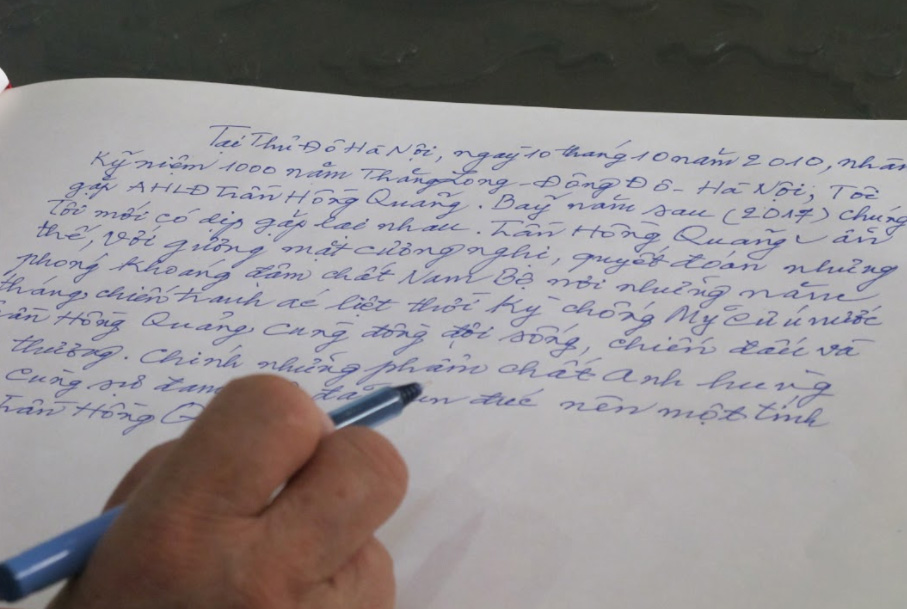 Tại Thủ Đô Hà Nội, ngày 10 tháng 10 năm 2010, nhân
Kỹ niệm 1000 năm Thăng Long - Đông Đô - Hà Nội; Tôi
gặp AHLĐ Trần Hồng Quang. Bảy năm sau (2017) chúng
Tôi mới có dịp gặp lại nhau. Trần Hồng Quảng vẫn
thế, với gương mặt cương nghị, quyết đoán nhưng
phóng khoáng đậm chất Nam Bộ, nơi những năm
tháng chiến tranh ác liệt thời kỳ chống Mỹ cứu nước
Trần Hồng Quảng cùng đồng đội sống, chiến đấu và
thương. Chính những phẩm chất anh hùng
cùng sự
đúc nên một tính
Trần Hồng